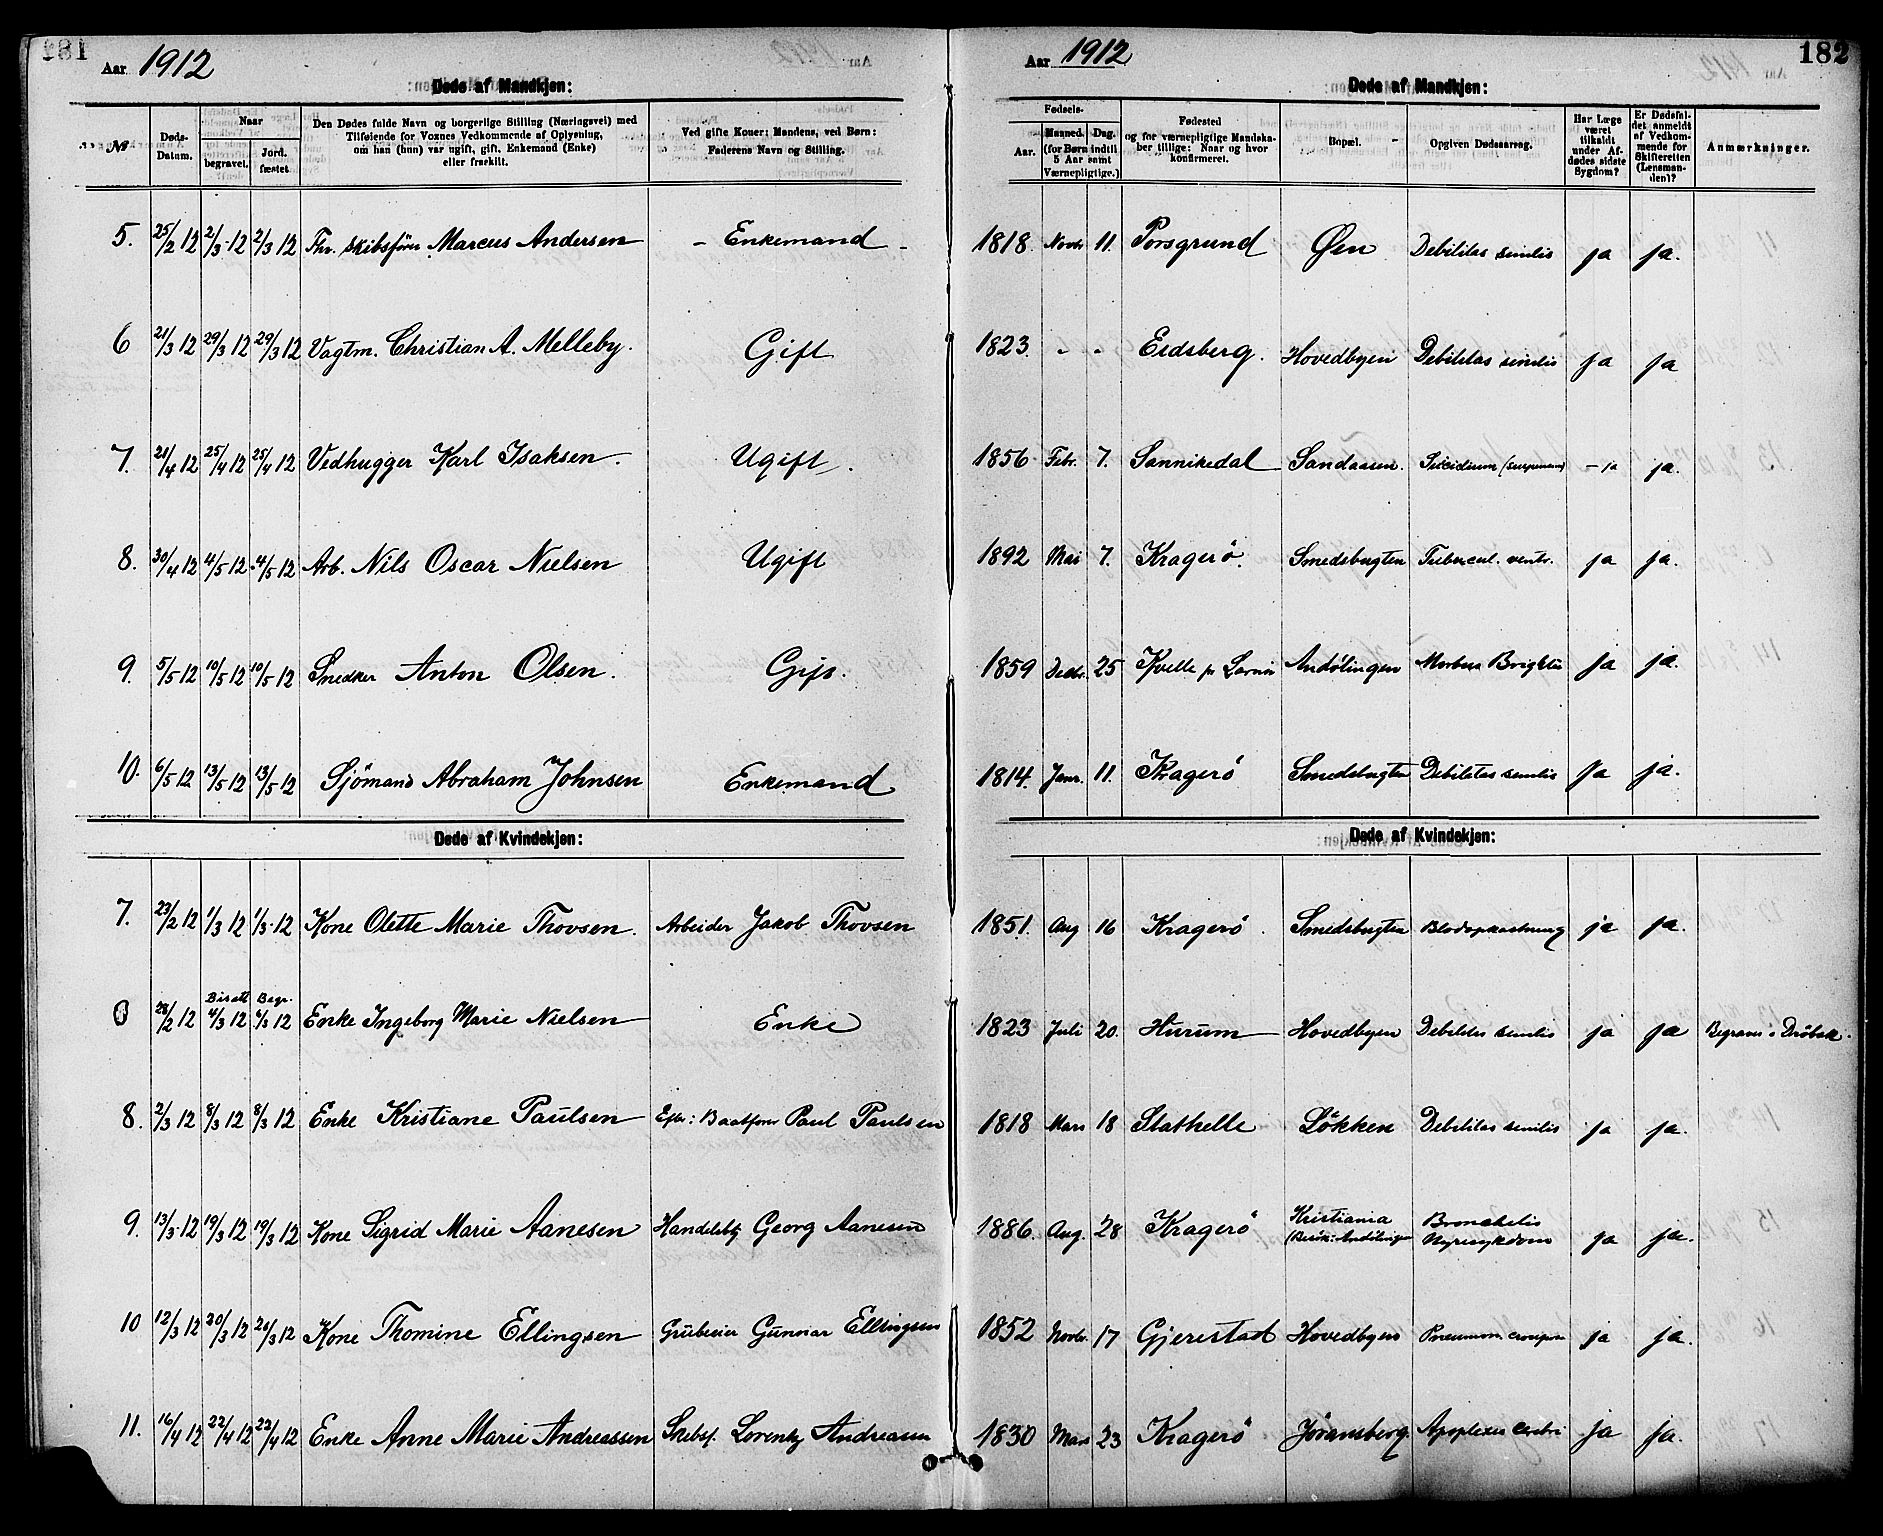 181
Aar 1912
Døde af Mandkjøn:
№
Døds-Datum.
Naar
begravet.
Jord-fæstet.
Den Dødes fulde Navn og borgerlige Stilling (Næringsvei) med
Tilføiende for Voxnes Vedkommende af Oplysning,
om han (hun) var ugift, gift, Enkemand (Enke)
eller fraskilt.
Ved gifte Koner: Mandens, ved Børn:
Faderens Navn og Stilling.
5. 25/2 12 2/3 12 2/3 12 Fhv. Skibsfører Marcus Andersen – Enkemand –
6 21/3 12 29/3 12 29/3 12 Vagtm. Christian A. Melleby. Gift
7. 21/4 12 25/4 12 25/4 12 Vedhugger Karl Isaksen. Ugift.
8. 30/4 12 4/5 12 4/5 12 Arb. Nils Oscar Nielsen Ugift
9. 5/5 12 10/5 12 10/5 12 Snedker Anton Olsen. Gift.
10. 6/5 12 13/5 12 13/5 12 Sjömand Abraham Johnsen Enkemand
Døde af Kvindekjøn:
7. 23/2 12 1/3 12 1/3 12 Kone Olette Marie Thovsen. Arbeider Jakob Thovsen
0 28/2 12 Bisatt 4/3 12 Begr. 4/3 12 Enke Ingeborg Marie Nielsen Enke
8. 2/3 12 8/3 12 8/3 12 Enke Kristiane Paulsen Efter: Baatfører Paul Paulsen
9. 13/3 12 19/3 12 19/3 12 Kone Sigrid Marie Aanesen Handelsbtj Georg Aanesen
10 12/3 12 20/3 12 20/3 12 Kone Thomine Ellingsen Grubeeier Gunnar Ellingsen
11. 16/4 12 22/4 12 22/4 12 Enke Anne Marie Andreassen Skibsf. Lorentz Andreasen
182
Aar 1912
Døde af Mandkjøn:
Fødsels-
Aar.
Maaned. Dag.
(for Børn indtil
5 Aar samt
Værnepligtige.)
Fødested
og for værnepligtige Mandska-
ber tillige: Naar og hvor
konfirmeret.
Bopæl.
Opgiven Dødsaarsag.
Har Læge
været
tilkaldt
under Af-
dødes sidste
Sygdom?
Er Dødsfal-
det anmeldt
af Vedkom-
mende for
Skifteretten
(Lensman-
den)?
Anmærkninger.
1818. Novbr 11. Porsgrund Øen Debilitas senilis ja ja.
1823. " " Eidsberg. Hovedbyen Debilitas senilis ja ja
1856 Febr. 7. Sannikedal Sandaasen. Suicidium (suspensio) – ja ja.
1892 Mai 7. Kragerö. Smedsbugten Tubercul. ventr. ja ja.
1859 Decbr. 25 Kvelle pr Larvik Andölingen Morbus Brightii ja ja.
1814. Janr. 11. Kragerö Smedsbugten Debilitas senilis ja ja.
Døde af Kvindekjøn:
1851. Aug 16 Kragerö. Smedsbugten Blodopkastning ja ja.
1823 Juli 20. Hurum Hovedbyen Debilitas senilis ja ja Begraves i Dröbak.
1818 Mars 18 Stathelle Lökken Debilitas senilis ja ja.
1886. Aug. 28 Kragerö Kristiania (Besök: Andölingen Bronchitis Nyresykdom ja ja.
1852 Novbr. 17 Gjerestad Hovedbyen Pneumon. croupos ja ja.
1830 Mars 23 Kragerö Jöransberg. Apoplexia cerebri ja ja.